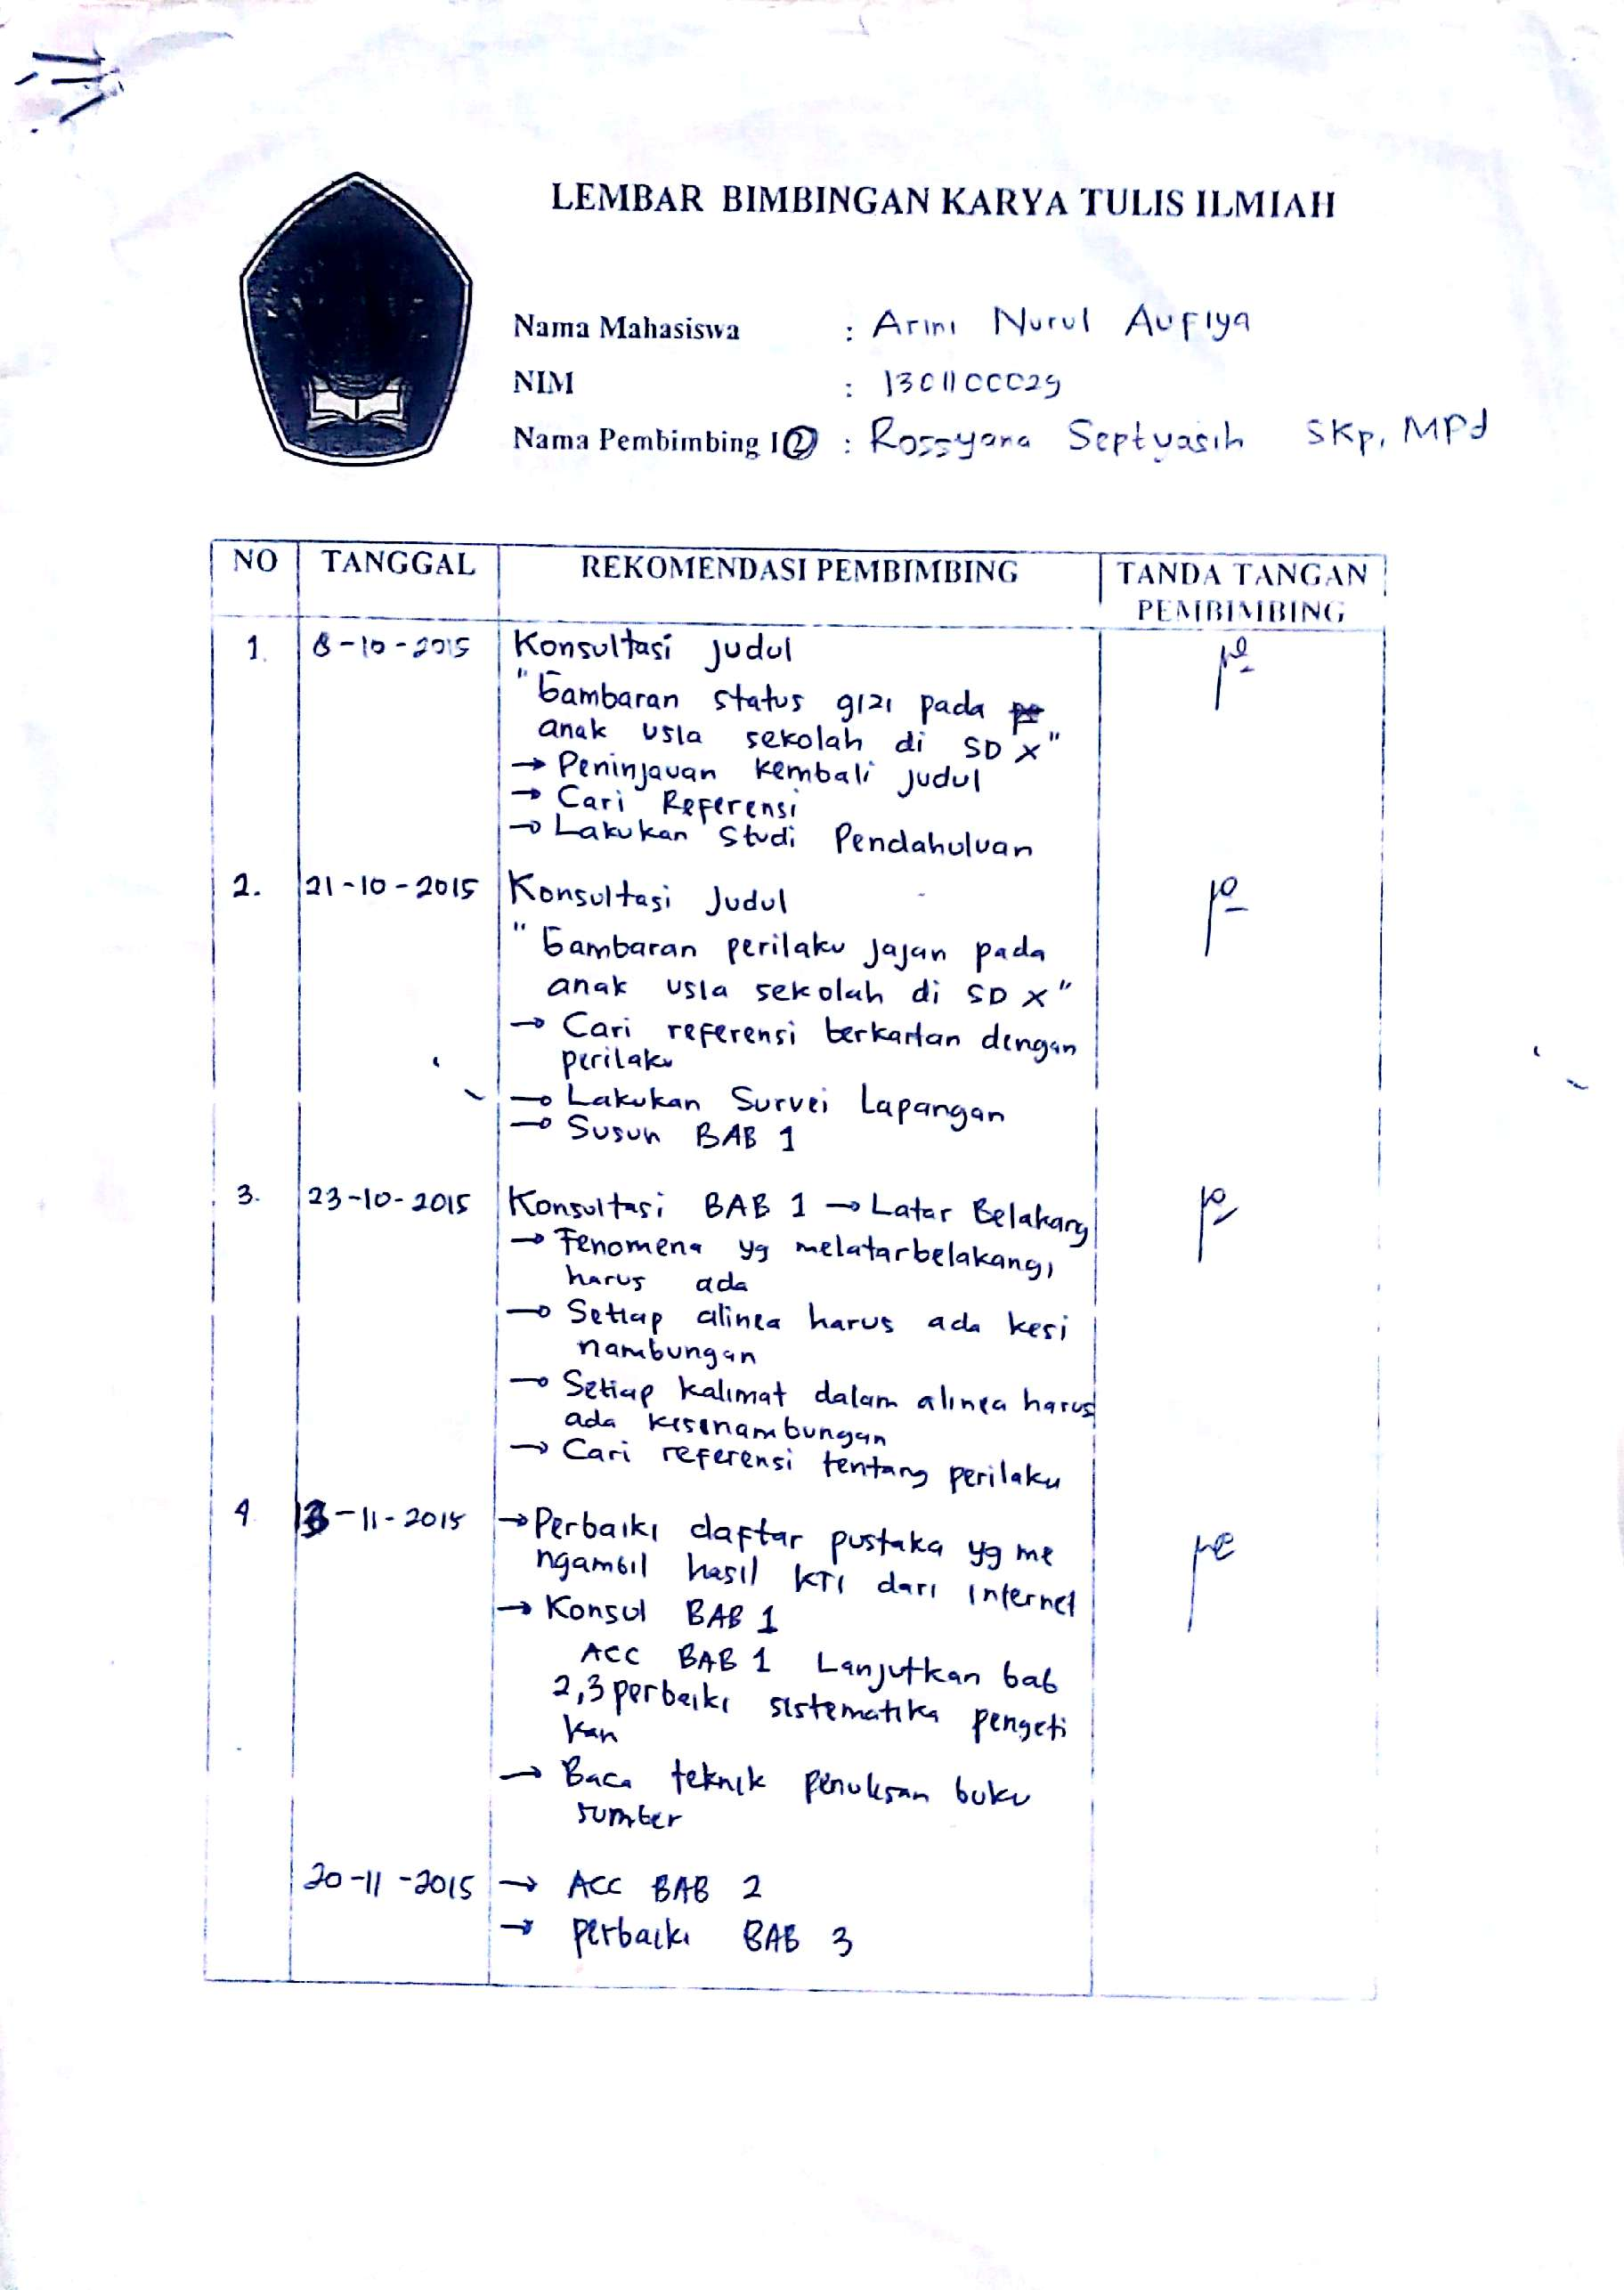 LEMBAR BIMBINGAN KARYA TULIS ILMIAH
Nama Mahasiswa : Arini Nurul Aufiya
NIM : 1301100029
Nama Pembimbing 1② : Rossyana Septyasih SKp, MPd
NO TANGGAL REKOMENDASI PEMBIMBING TANDA TANGAN PEMBIMBING
1. 8-10-2015 Konsultasi Judul
"Gambaran status gizi pada
anak usia sekolah di SD X"
→ Peninjauan kembali judul
→ Cari Referensi
→ Lakukan Studi Pendahuluan
2. 21-10-2015 Konsultasi Judul
"Gambaran perilaku jajan pada
anak usia sekolah di SD X"
→ Cari referensi berkaitan dengan
perilaku
→ Lakukan Survei Lapangan
→ Susun BAB 1
3. 23-10-2015 Konsultasi BAB 1 → Latar Belakang
→ Fenomena yg melatarbelakangi
harus ada
→ Setiap alinea harus ada kesi
nambungan
→ Setiap kalimat dalam alinea harus
ada kesinambungan
→ Cari referensi tentang perilaku
4. 13-11-2015 → Perbaiki daftar pustaka yg me
ngambil hasil KTI dari internet
→ Konsul BAB 1
ACC BAB 1 Lanjutkan bab
2,3 perbaiki sistematika pengeti
kan
→ Baca teknik penulisan buku
sumber
20-11-2015 → ACC BAB 2
→ perbaiki BAB 3